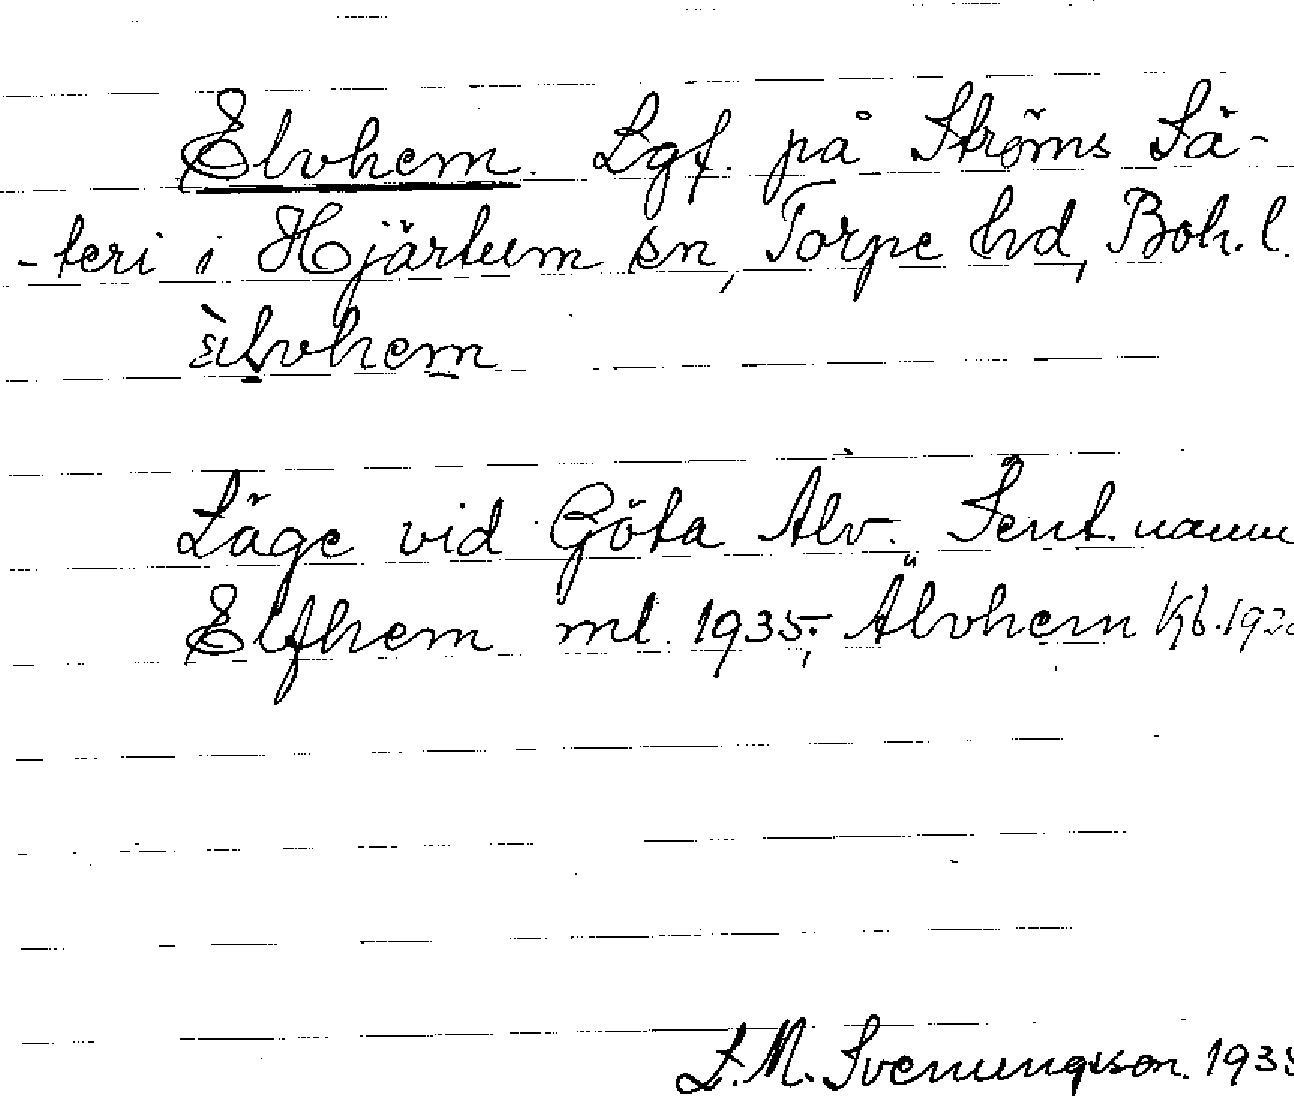 Elvhem. Lgf. på Ströms Sä-
-teri i Hjärtum sn, Torpe hd, Boh. l.
Läge vid Göta Älv. Sent. namn
Elfhem ml. 1935; Älvhem Kb. 
L.M. Svenungsson. 193